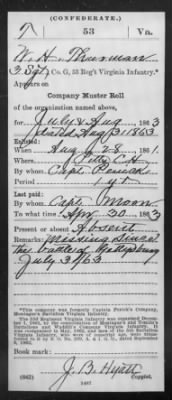 (CONFEDERATE.)
T 53 Va.
W. H. Thurman
3 Sgt, Co. G, 53 Reg't Virginia Infantry.*
Appears on
Company Muster Roll
of the organization named above,
for July & Aug, 1863
dated Aug 31 1863
Enlisted:
When Aug 28, 1861
Where Pitts C H
By whom Capt
Period 1 yr
Last paid:
By whom Capt. Moon
To what time Apr 30, 1863
Present or absent Absent
Remarks: Missing since
the battle of Gettysburg
July 3/63
*This company was formerly Captain
Montague's Battalion Virginia Infantry.
The 53d Regiment Virginia Infantry was
Book mark:
J. B. Hyatt
(642) Copyist.